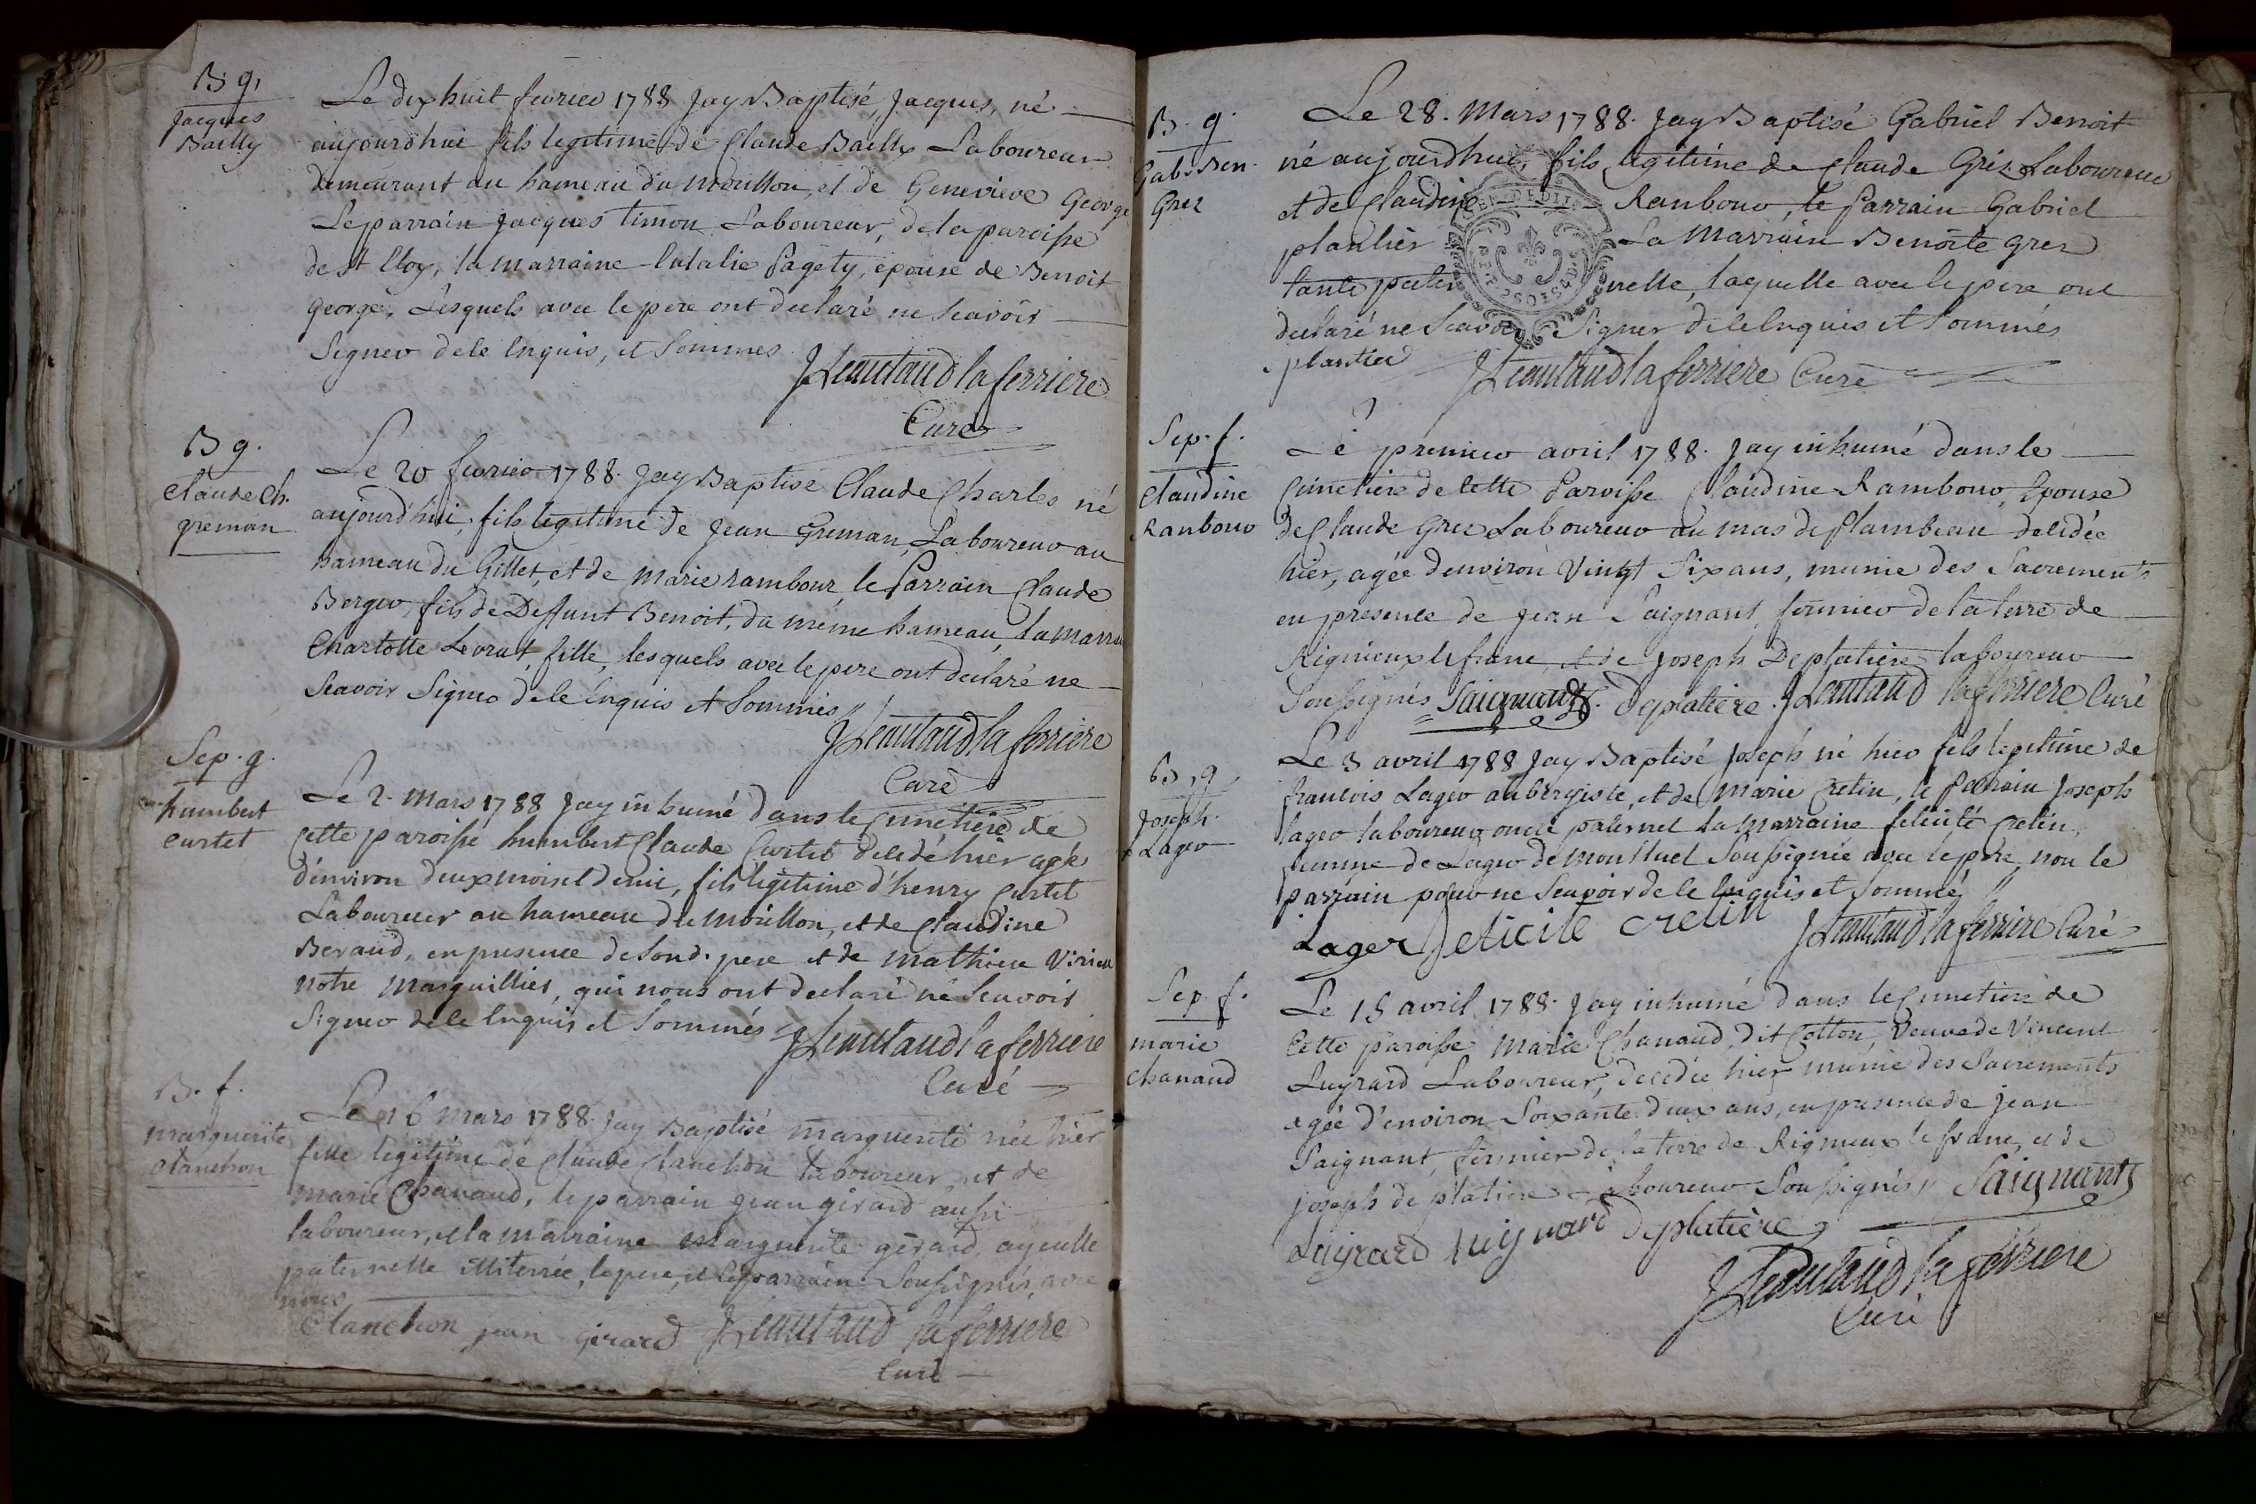 B. g.
Jacques
Bailly
Le dix huit fevrier 1788 Jay Baptisé, Jacques, né
aujourdhui fils legitime de Claude Bailly Laboureur
demeurant au hameau du Morillon, et de Genevieve George
Le parrain Jacques Timon Laboureur, de la paroisse
de st Eloy, la marraine Eulalie Pagety, epouse de Benoit
george, Lesquels avec le pere ont declaré ne scavoir
Signer de ce Enquis, et Sommes
JLeautaud la ferriere
Curé
B g.
Claude Ch.
greman
Le 20 fevrier 1788. Jay Baptisé Claude Charles né
aujourd'hui, fils legitime de Jean Greman, Laboureur au
hameau du Gillet, et de Marie rambour, le Parrain Claude
Berger, fils de Deffunt Benoit, du même hameau, la marra
Charlotte Levrat, fille, lesquels avec le pere ont declaré ne
Scavoir Signer de ce Enquis et Sommés
JLeautaud la ferriere
Curé
Sep. g.
humbert
curtet
Le 2. Mars 1788 Jay inhumé dans le Cimetiere de
cette paroisse humbert Claude Curtet decedé hier agé
d'environ deux mois et demi, fils legitime d'henry Curtet
Laboureur au hameau du Morillon, et de Claudine
Beraud, en presence de sond. pere et de Mathieu Virieu
notre Marguillier, qui nous ont declaré ne Scavoir
Signer de ce Enquis et Sommés
JLeautaud la ferriere
Curé
B. f.
marguerite
clanchon
Le 16 mars 1788. Jay Baptisé marguerite née hier
fille legitime de Claude Clanchon laboureur et de
marie Chanaud, le parrain jean girard aussi
laboureur, et la Maraine Marguerite gerard, ayeulle
paternelle illiterée, le pere, et le parrain Soussignés, avec
nous
Clanchon jean Girard JLeautaud la ferriere
Curé
B. g.
Gab. Ben.
Grez
Le 28. Mars 1788. Jay Baptisé Gabriel Benoit
né aujourdhui, fils legitime de Claude Grez Laboureur
et de Claudine Ranbour, le Parrain Gabriel
plantier La Marraine Benoite grez
tante pater nelle, laquelle avec le pere ont
declaré ne Scavoir Signer de ce Enquis et Sommés
plantier JLeautaud la ferriere Curé
Sep. f.
Claudine
Ranbour
Le premier avril 1788. Jay inhumé dans le
Cimetiere de cette Paroisse Claudine Rambour, Epouse
de Claude Grez Laboureur au mas de flambeau decedée
hier, agée d'environ Vingt Six ans, munie des Sacrements
en presence de Jean Saignant, fermier de la terre de
Rignieux le franc et de Joseph Deplatiere laboureur
Soussignés Saignant. Deplatiere. JLeautaud la ferriere Curé
B. g
Joseph
Lager
Le 3 avril 1788 Jay Baptisé Joseph né hier fils legitime de
francois Lager aubergiste, et de Marie Cretin, le parrain Joseph
lager laboureur oncle paternel la Marraine felicité Cretin,
femme de Lager de Montluel Soussignée avec le pere, non le
parrain pour ne Scavoir de ce Enquis et Sommé
Lager felicité cretin JLeautaud la ferriere Curé
Sep. f.
marie
Chanaud
Le 15 avril 1788. Jay inhumé dans le Cimetiere de
Cette paroisse Marie Chanaud, dit Cotton, Veuve de Vincent
Luyrard Laboureur, decedée hier munie des Sacrements
agée d'environ Soixante deux ans, en presence de Jean
Saignant, fermier de la terre de Rignieux le franc, et de
joseph de platiere laboureur Soussignés Saignant
Luyrard Deplatiere
JLeautaud la ferriere
Curé